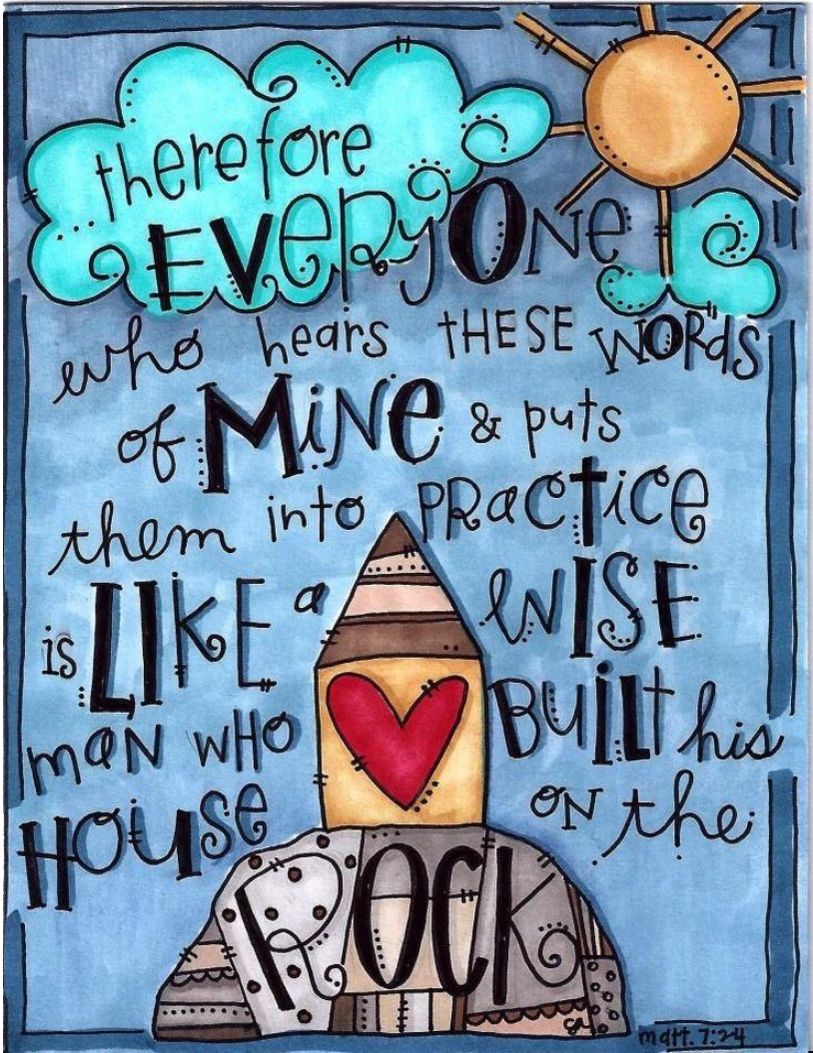 therefore
EVERyONE
who hears THESE WORDS
of MiNe & puts
them into PRACtiCe
is LIKE a WISE
maN wHO BuiLt his
House ON the
ROCK
matt. 7:24